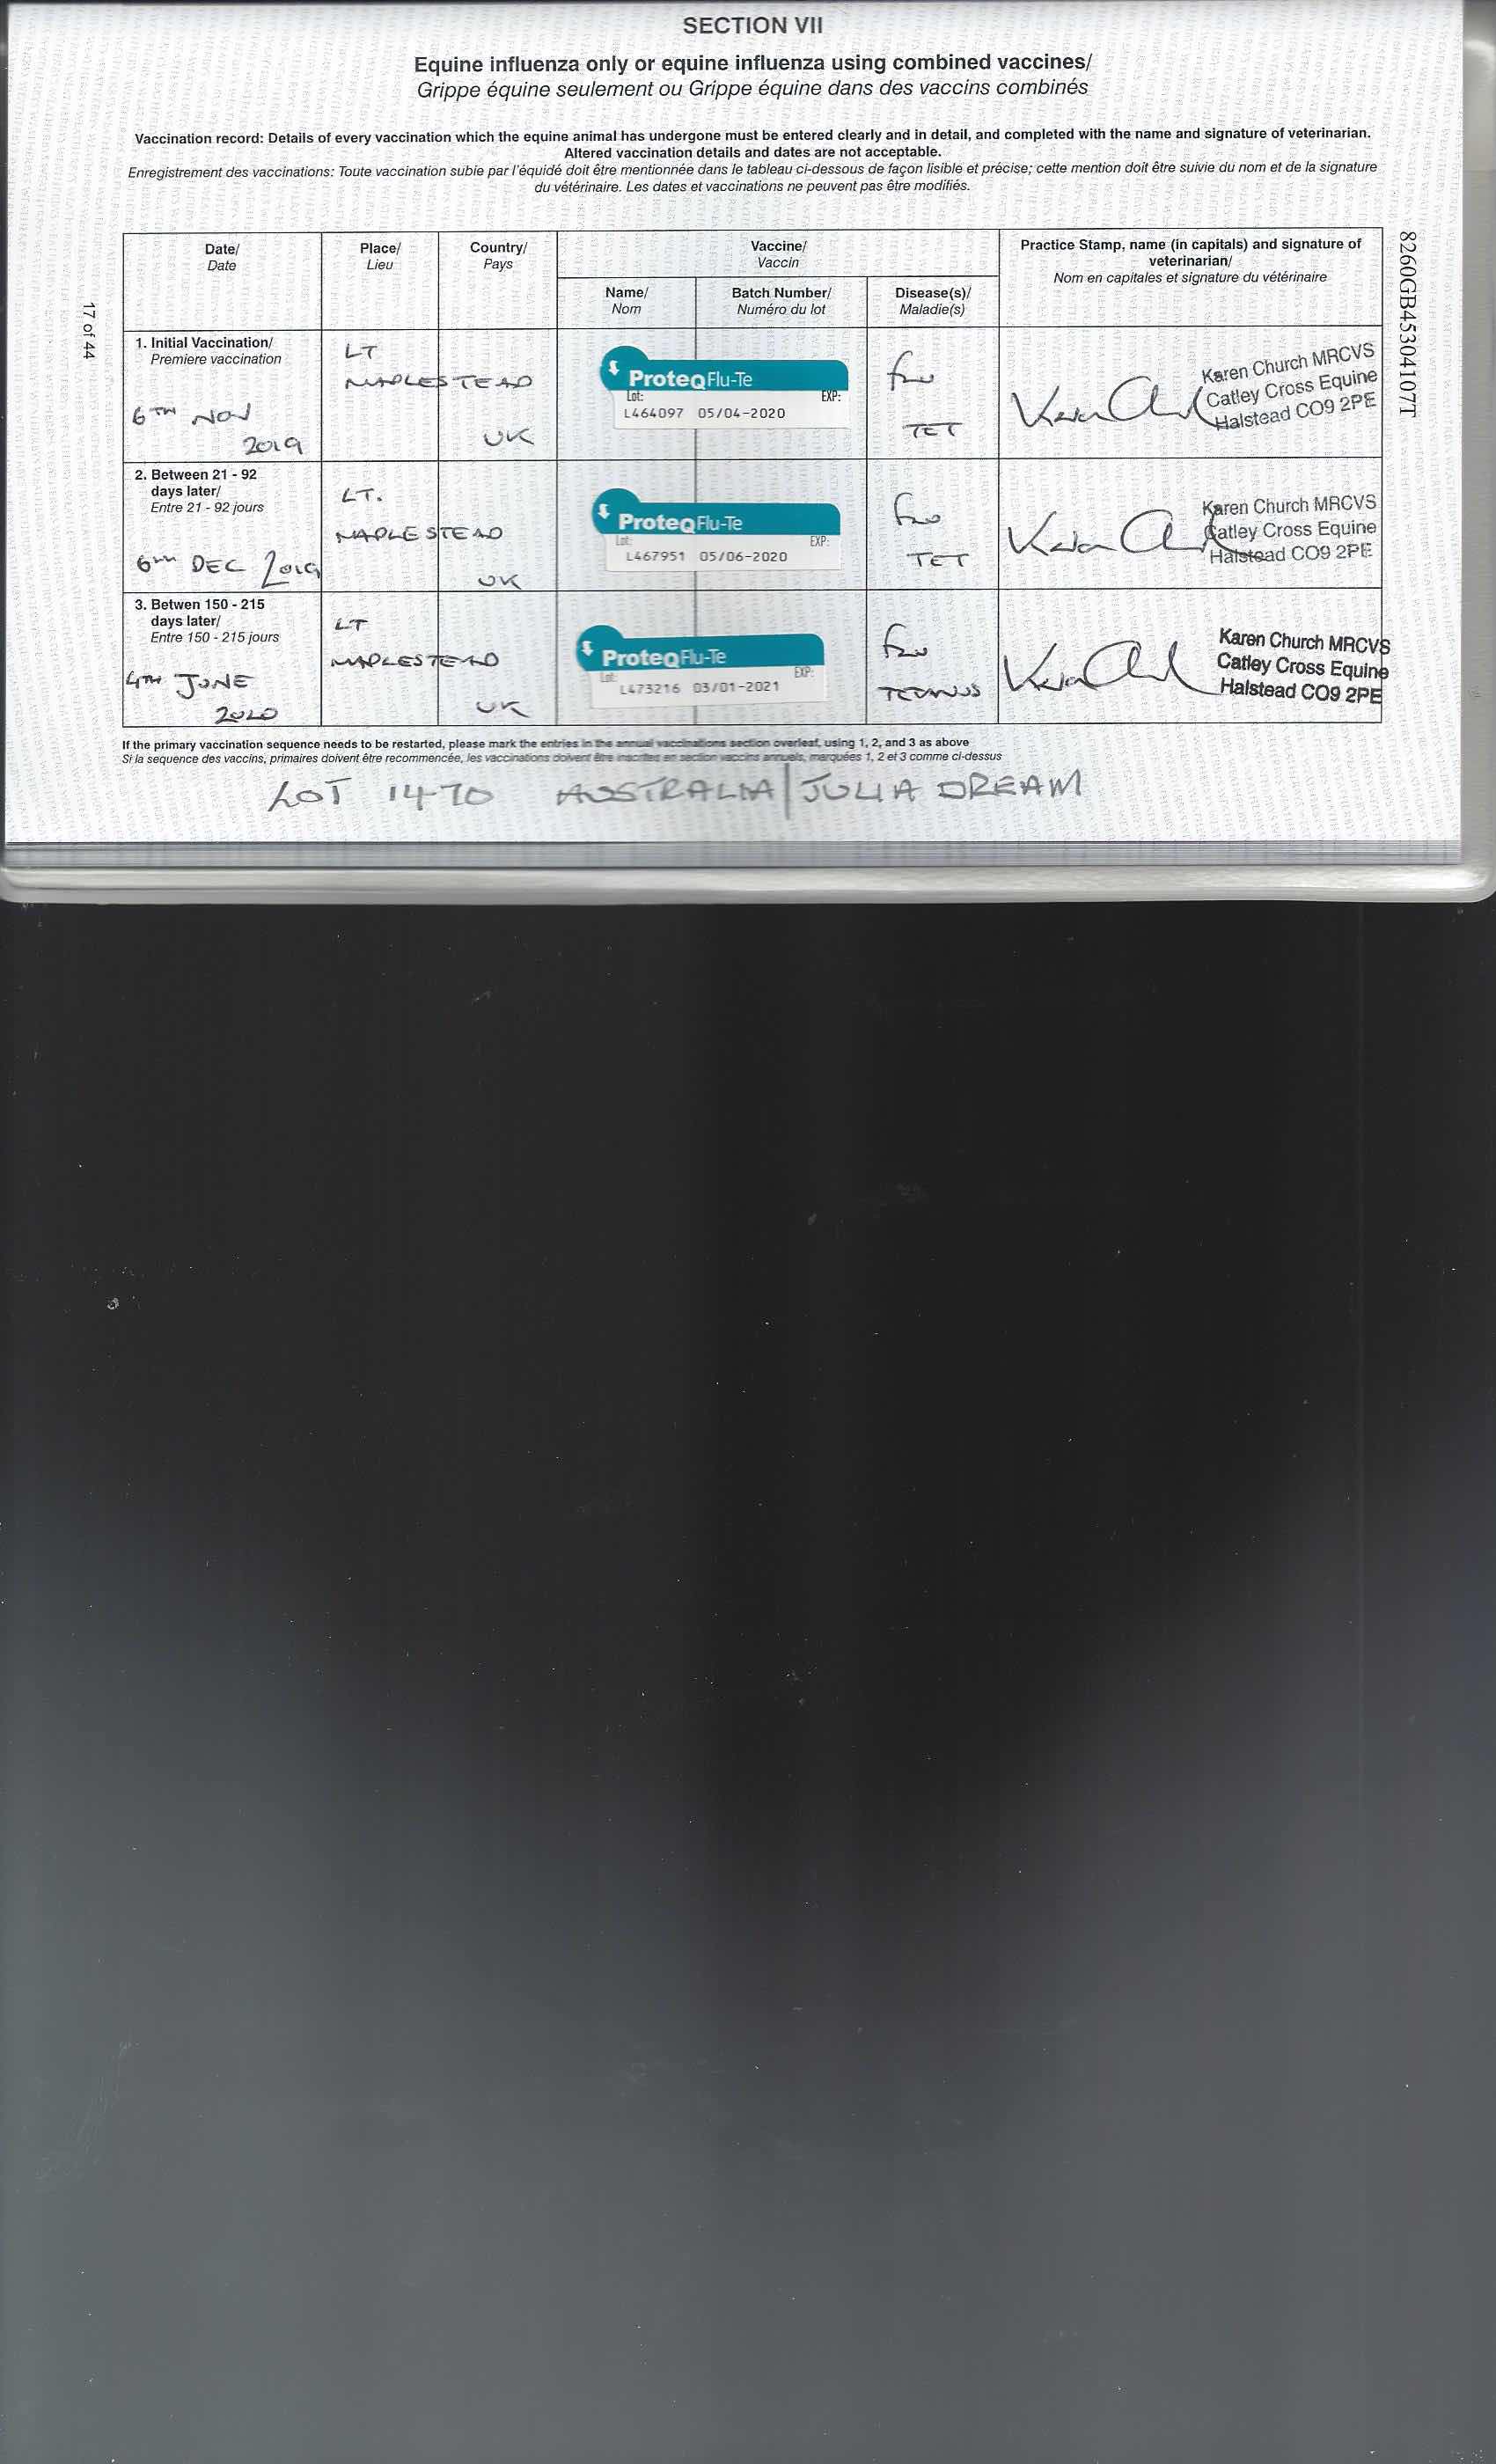 SECTION VII
Equine influenza only or equine influenza using combined vaccines/
Grippe équine seulement ou Grippe équine dans des vaccins combinés
Vaccination record: Details of every vaccination which the equine animal has undergone must be entered clearly and in detail, and completed with the name and signature of veterinarian.
Altered vaccination details and dates are not acceptable.
Enregistrement des vaccinations: Toute vaccination subie par l'équidé doit être mentionnée dans le tableau ci-dessous de façon lisible et précise; cette mention doit être suivie du nom et de la signature
du vétérinaire. Les dates et vaccinations ne peuvent pas être modifiés.
Date/
Date
Place/
Lieu
Country/
Pays
Vaccine/
Vaccin
Name/
Nom
Batch Number/
Numéro du lot
Disease(s)/
Maladie(s)
Practice Stamp, name (in capitals) and signature of
veterinarian/
Nom en capitales et signature du vétérinaire
1. Initial Vaccination/
Premiere vaccination
6TH NOV
2019
LT
MAPLESTEAD
UK
ProteqFlu-Te
Lot: EXP:
L464097 05/04-2020
Flu
TET
Karen Church MRCVS
Catley Cross Equine
Halstead CO9 2PE
2. Between 21 - 92
days later/
Entre 21 - 92 jours
6TH DEC 2019
LT.
MAPLESTEAD
UK
ProteqFlu-Te
Lot: EXP:
L467951 05/06-2020
Flu
TET
Karen Church MRCVS
Catley Cross Equine
Halstead CO9 2PE
3. Betwen 150 - 215
days later/
Entre 150 - 215 jours
4TH JUNE
2020
LT
MAPLESTEAD
UK
ProteqFlu-Te
Lot: EXP:
L473216 03/01-2021
Flu
Karen Church MRCVS
Catley Cross Equine
Halstead CO9 2PE
If the primary vaccination sequence needs to be restarted, please mark the entries in the annual vaccinations section overleaf, using 1, 2, and 3 as above
Si la sequence des vaccins, primaires doivent être recommencée, les vaccinations doivent être inscrites en section vaccins annuels, marquées 1, 2 et 3 comme ci-dessus
LOT 1470 AUSTRALIA | JULIA DREAM
17 of 44
8260GB45304107T